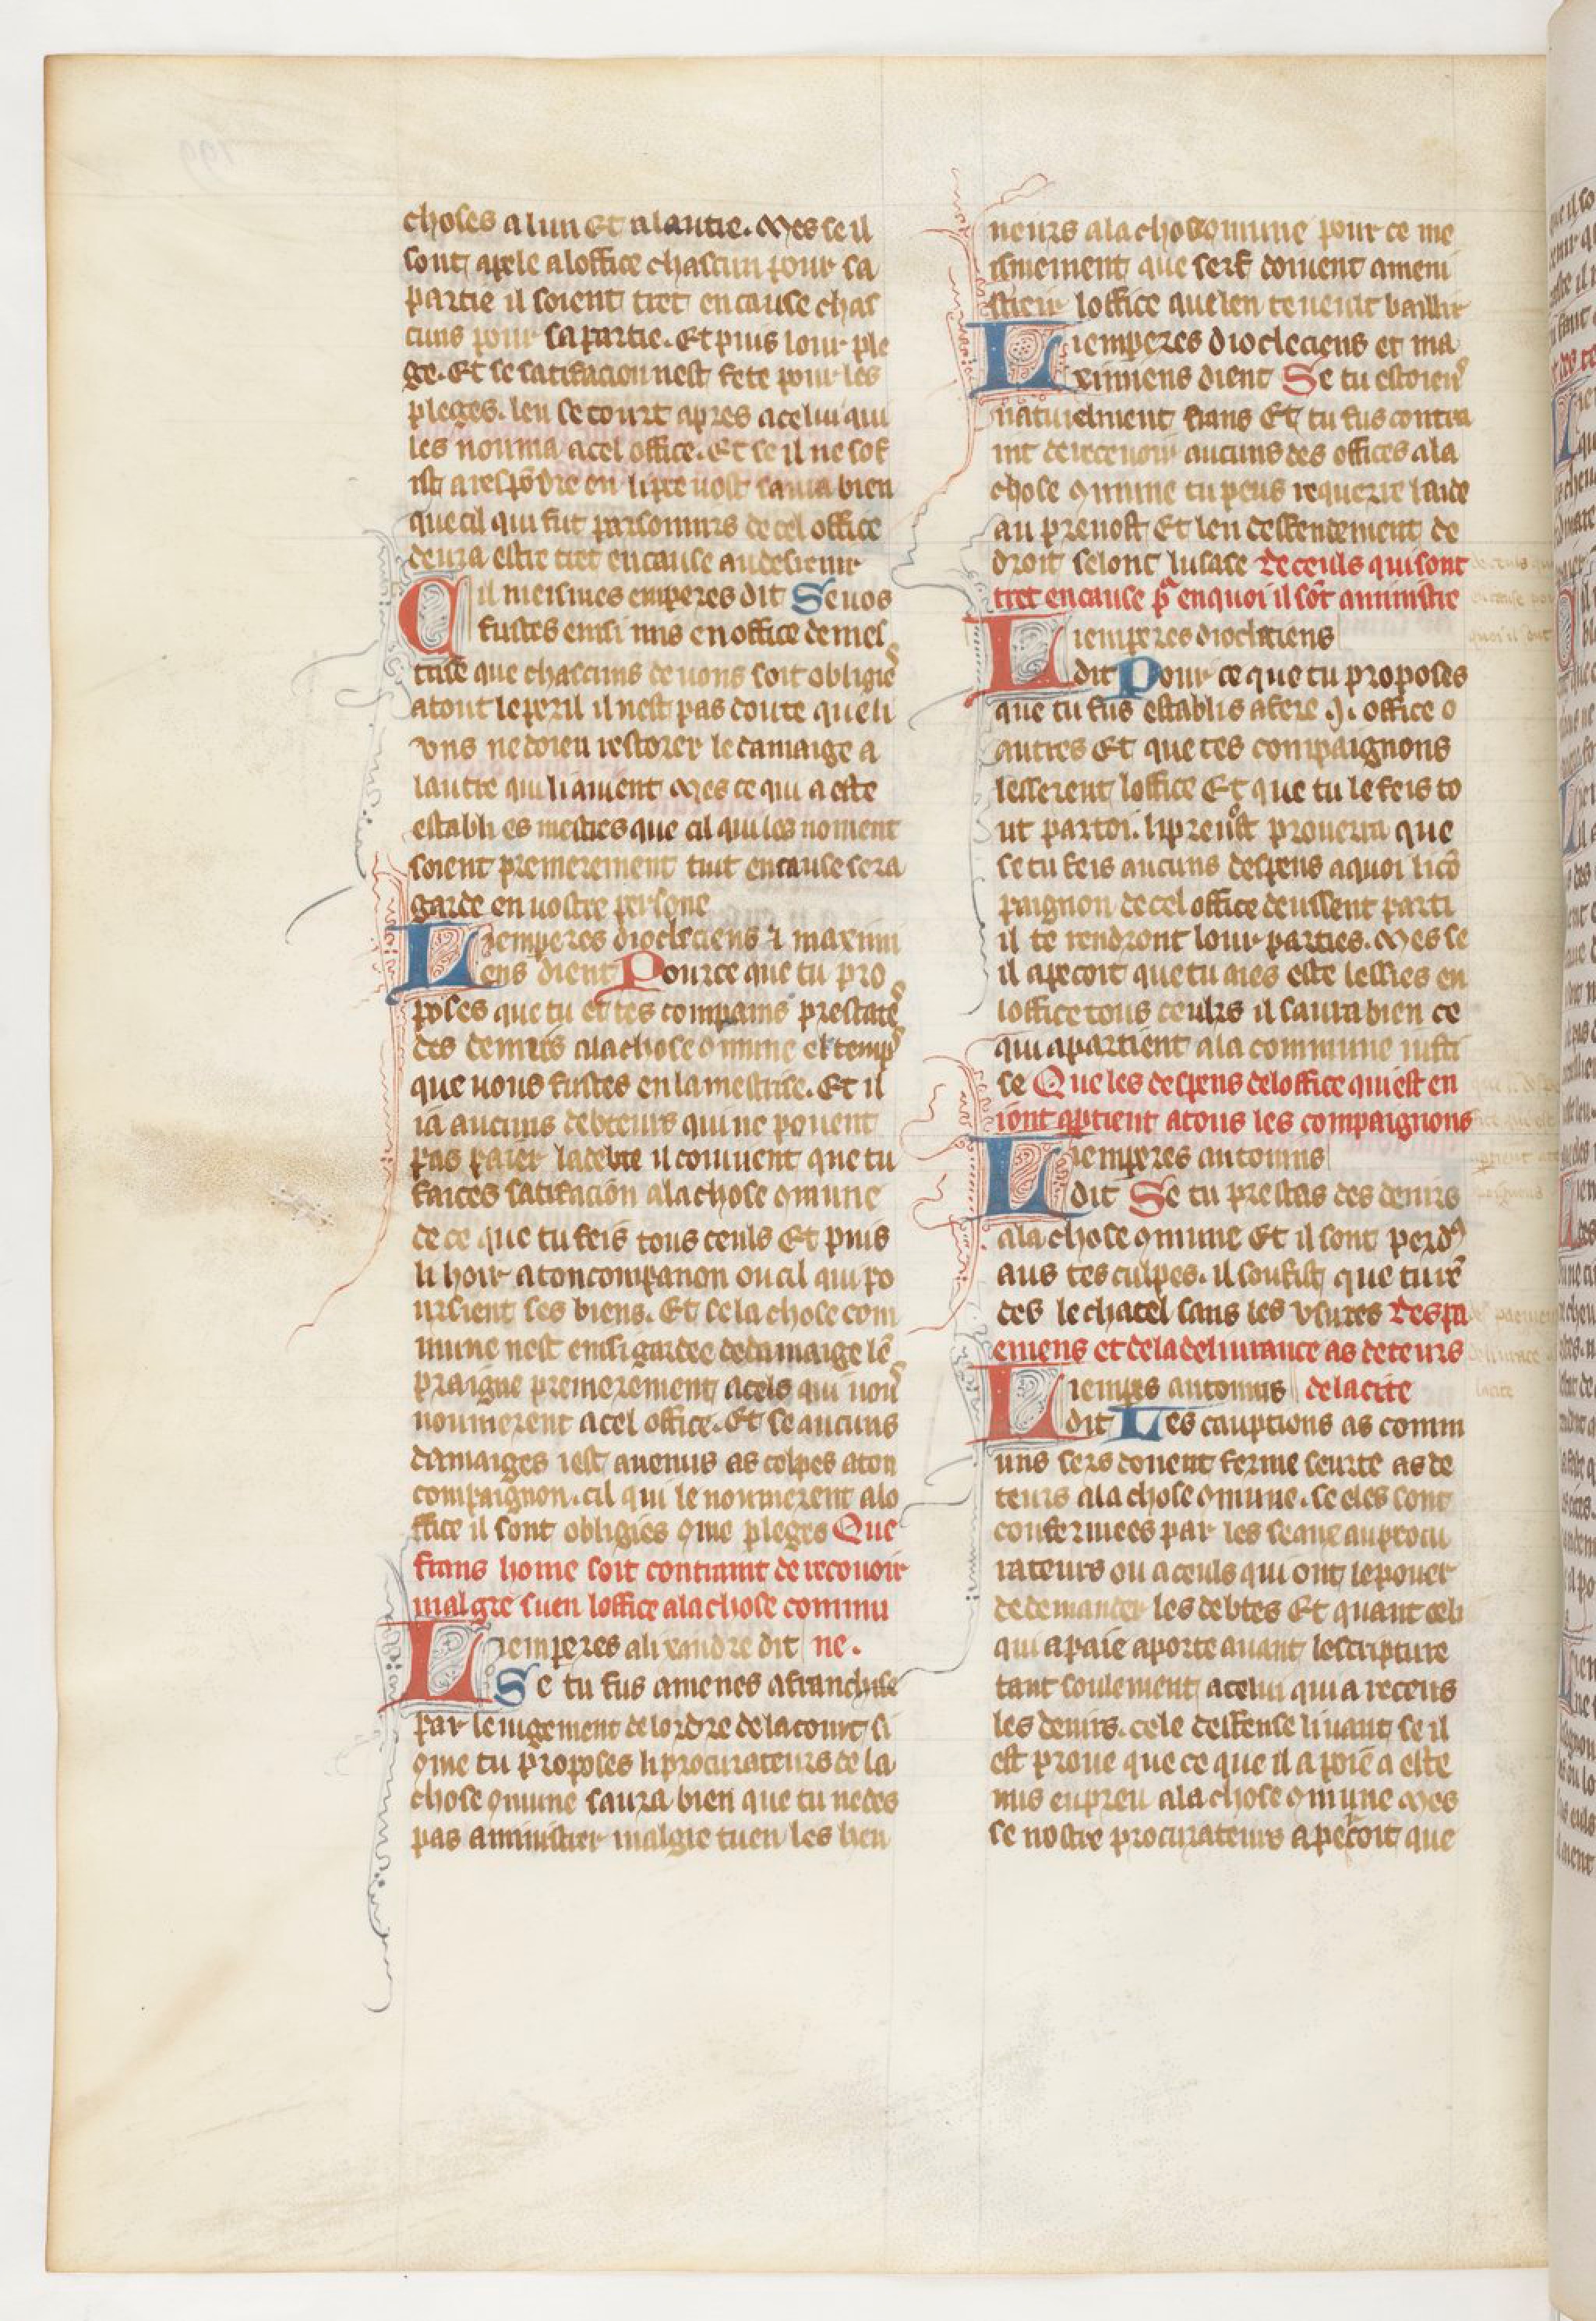 choses a lun Et a lautre. Mes se il
sont apele a loffice chascun pour sa
partie il soient tret en cause chas
cuns pour sa partie. Et puis lour ple
ge. Et se satifacion nest fete pour les
pleges. len se court apres a celui qui
les nomma a cel office. Et se il ne sof
ist a respõdre en li pre uost saura bien
que cil qui fut parsonniers de cel office
deura estre tret en cause au desrenir
Cil meismes emperes dit Se uos
fustes ensi mis en office de mes
trise que chascuns de uous soit obligie
a tout le peril il nest pas doute que li
vns ne doieu restorer le damaige a
lautre qui li auient Mes ce qui a este
establi es mestres que cil qui les noment
soient premerement tret en cause sera
garde en uostre persone
Li emperes diocleciens ⁊ maximi
ens dient Pour ce que tu pro
poses que tu et tes compains prestate
des deniers a la chose ꝯmune el temp
que uous fustes en la mestrise. Et il
ia aucuns debteurs qui ne pouent
pas paier la debte il couuient que tu
faices satifacion a la chose ꝯmune
de ce que tu feis tous ceuls Et puis
li hoir a ton compaignon ou cil qui po
ursient ses biens. Et se la chose com
mune nest ensi gardee de damaige lẽ
praigne premerement a cels qui uou
nommerent a cel office. Et se aucuns
damaiges i est auenus as colpes a ton
compaignon. cil qui le nommerent a lo
ffice il sont obligies ꝯme pleges Que
frans home soit contraint de receuoir
malgre suen loffice a la chose commu
Li emperes alixandre dit ne.
Se tu fus amenes a franchise
par le iugement de lordre de la court si
ꝯme tu proposes li procurateurs de la
chose ꝯmune saura bien que tu ne des
pas aministrer malgre tuen les hen
neurs a la chose comune pour ce me
ismement que serf doiuent ameni
strer loffice que len te ueult baillir
Li emperes diocleciens et ma
ximiens dient Se tu estoies
naturelment frans Et tu fus contra
int de receuoir aucuns des offices a la
chose ꝯmune tu peus requerre laide
au preuost Et len deffendement de
droit selonc lusaie De ceuls qui sont
tret en cause pͣ en quoi il sõt aministre
Li emperes diocleciens
dit Pour ce que tu proposes
que tu fus establis a fere .j. office o
autres Et que tes compaignons
lesserent loffice Et que tu le feis to
ut par toi. li preuost prouerra que
se tu feis aucuns despens a quoi li cõ
paignon de cel office deussent parti
il te rendront lour parties. Mes se
il apecoit que tu aies este lessies en
loffice tous ceulrs il saura bien ce
qui apartient a la commune iusti
se Que les despens de loffice qui est en
iont aptient a tous les compaignons
Li emperes antonins
dit Se tu prestas des deniers
a la chose ꝯmune Et il sont perdꝰ
aus tes culpes. il soufist que tu rẽ
des le chatel sans les vsures Des pa
emens et de la deliurance as deteurs
Li emperes antonins de la cite
dit Les cauptions as comm
uns sers donent ferme seurte as de
teurs a la chose ꝯmune. se eles sont
confermees par les seaux au procu
rateurs ou a ceuls qui ont le pouer
de demander les debtes Et quant celi
qui a paie aporte auant lescripture
tant soulement a celui qui a receus
les deniers. cele deffense li uaut se il
est proue que ce que il a poie a este
mis en preu a la chose ꝯmune Mes
se nostre procurateurs apecoit que